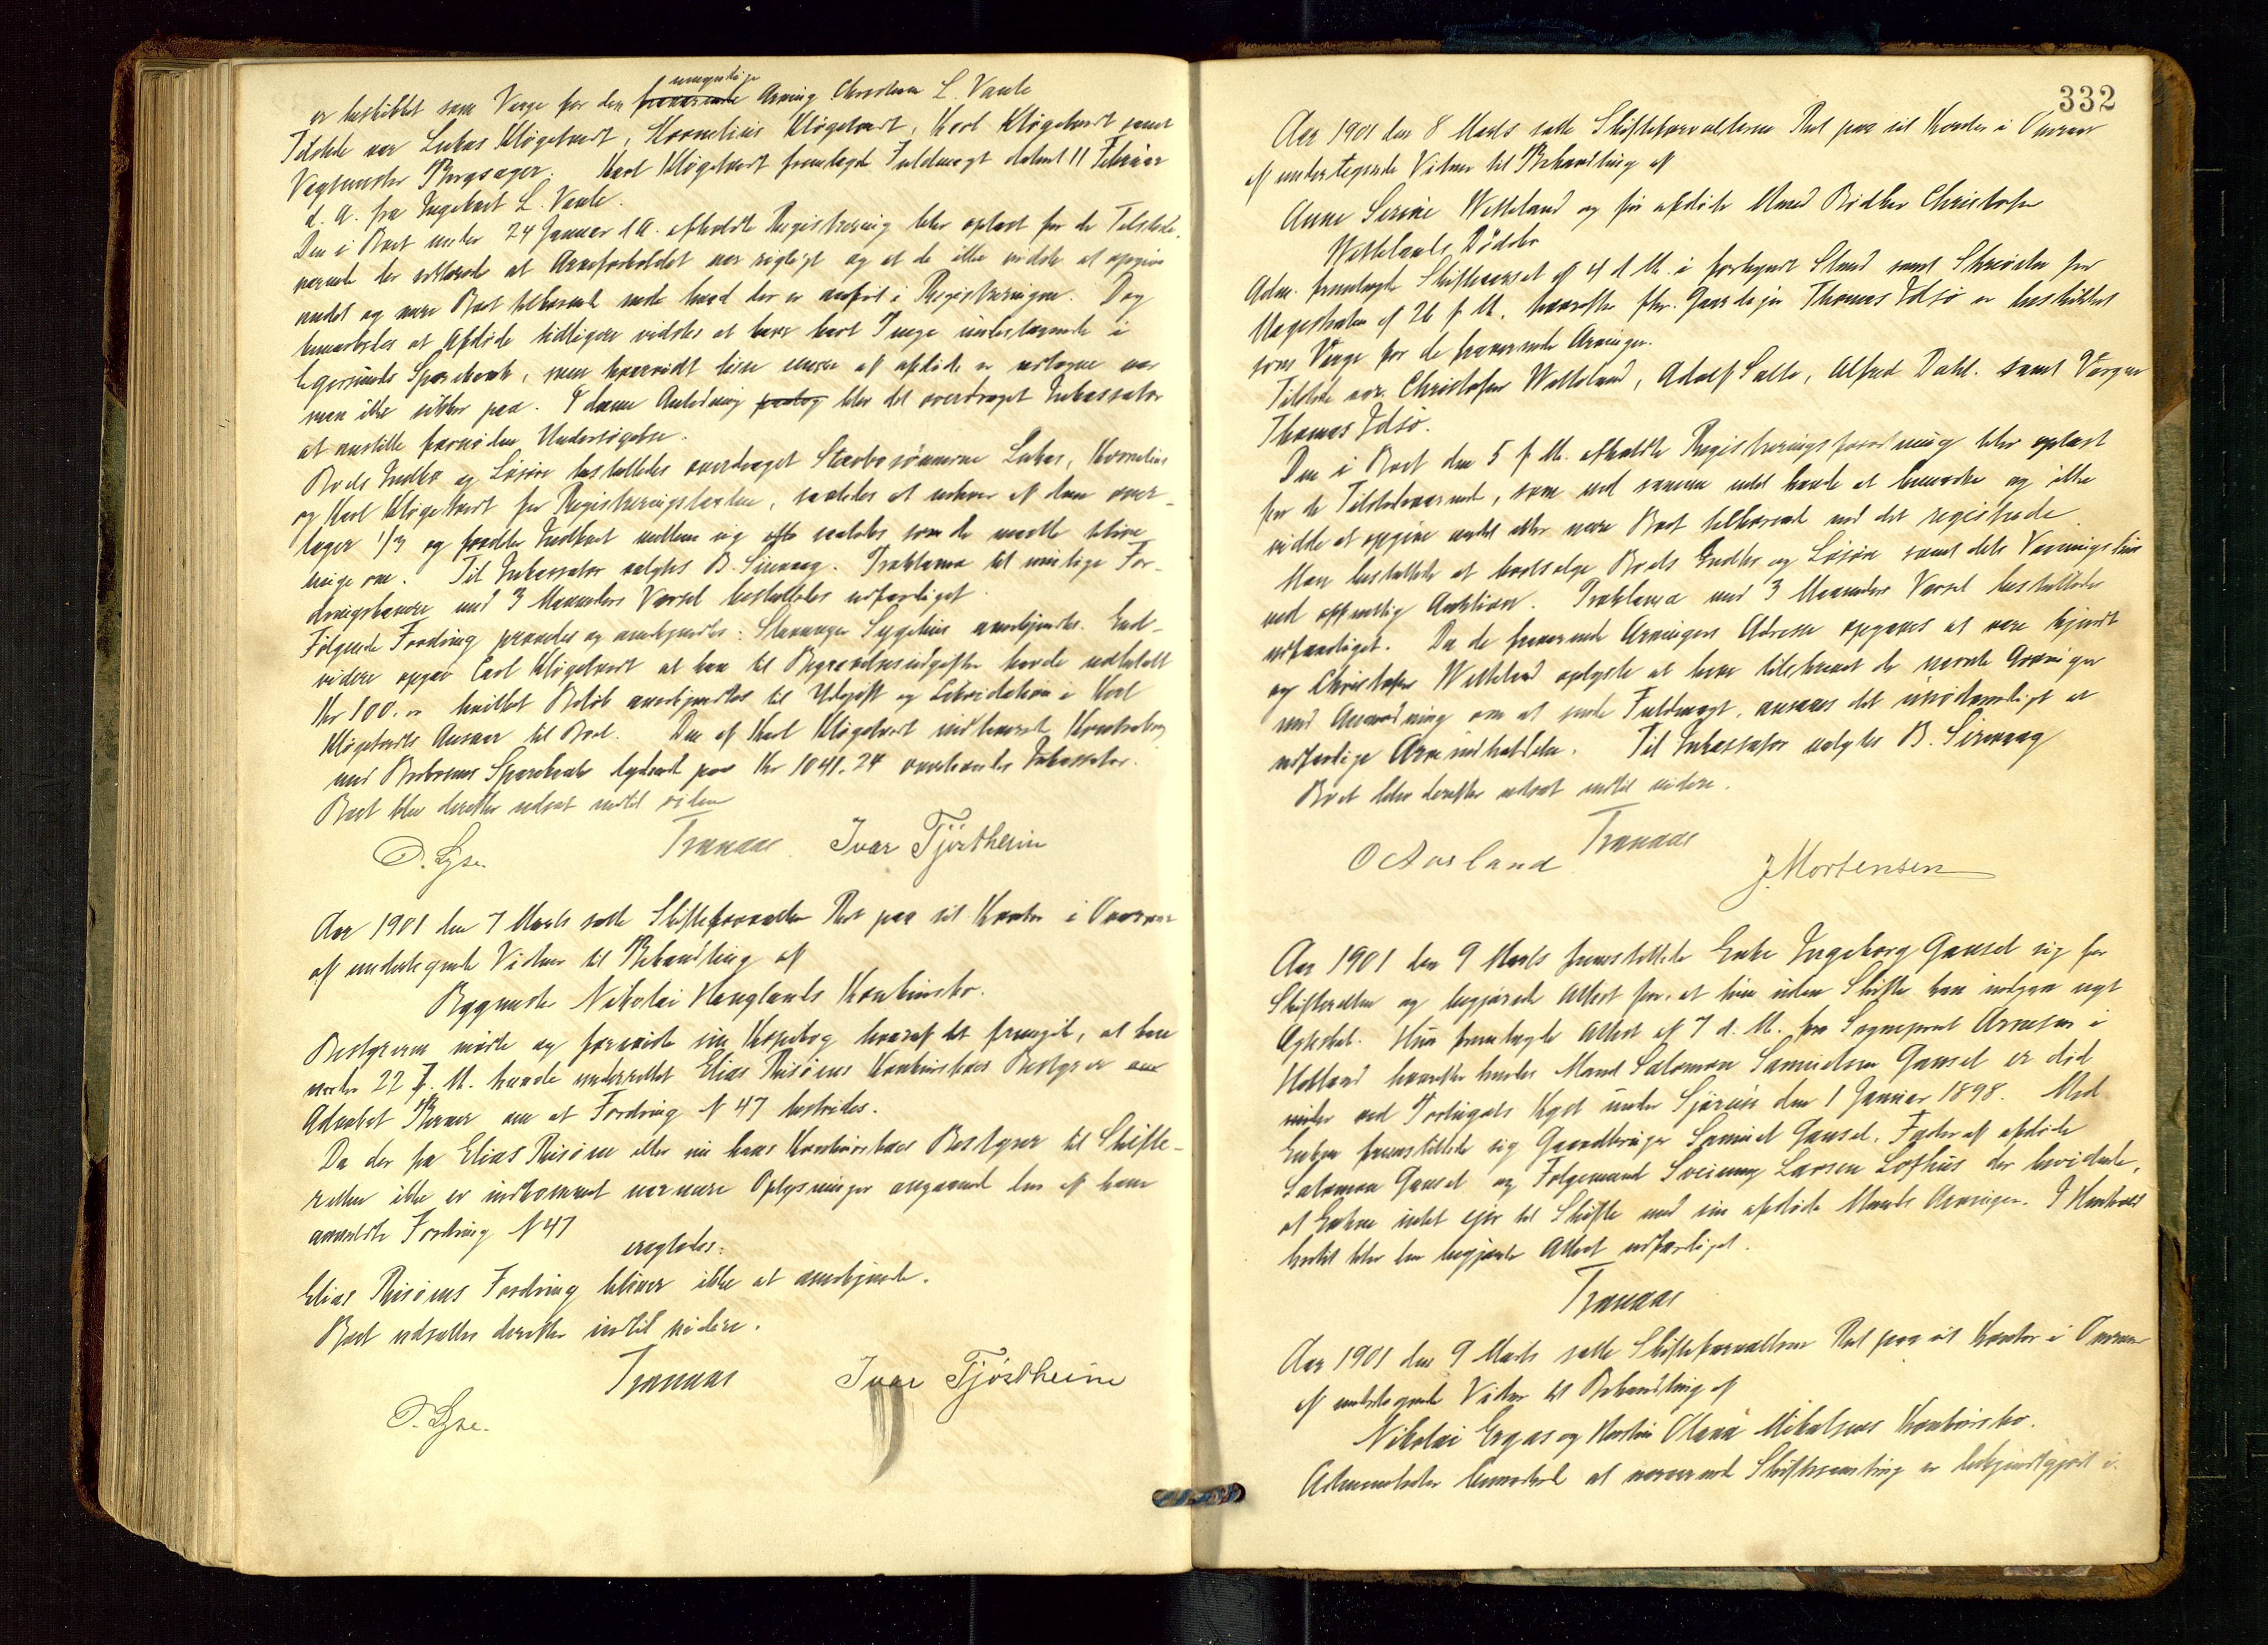 er beskikket som Verge for den fraværende umyndige Arving Christian L. Vaule
Tilstede var Lukas Kløgetvedt, Kornelius Kløgetvedt, Karl Kløgetvedt samt
Vagtmester Borgsager. Karl Kløgetvedt fremlagde Fuldmagt dateret 11 Februar
d. A. fra Ingebret L. Vaule.
Den i Boet under 24 Januar d A. afholdte Registrering blev oplæst for de Tilstede-
værende der erklærede at Arveforholdet var rigtigt og at de ikke vidste at opgive
andet og mere Boet tilhørende end hvad der er anført i Registreringen. Dog
bemærkedes at Afdøde tidligere vidstes at have havt Penge indestaaende i
Egersunds Sparebank, men hvorvidt disse senere af afdøde er udtagne var
man ikke sikker paa. I denne Anledning blev det overdraget Inkassator
at anstille fornøden Undersøgelse.
Boets Indbo og Løsøre besluttedes overdraget Stervbosønnerne Lukas, Kornelius
og Karl Kløgetvedt for Registreringstaxten, saaledes at enhver af dem over-
tager 1/3 og fordeler Indboet mellem sig saaledes som de maatte blive
enige om. Til Inkassator valgtes B. Sirevaag. Proklama til mulige For-
dringshavere med 3 Maaneders Varsel besluttedes udfærdiget.
Følgende Fordring prøvedes og anerkjendtes: Stavanger Sygehus anerkjendt. End-
videre opgav Carl Kløgetvedt at han til Begravelsesudgifter havde udbetalt
Kr 100. hvilket Beløb anerkjendtes til Udgift og Likvidation i Karl
Kløgetvedts Ansvar til Boet. Den af Karl Kløgetvedt indleverede Kontrabog
med Sparebank lydende paa Kr 1041.24 overleveredes Inkassator.
Boet blev derefter udsat indtil videre
Tranaas Ivar Tjøstheim
O. Lyse.
Aar 1901 den 7 Marts satte Skifteforvalteren Ret paa sit Kontor i
af undertegnede Vidner til Behandling af
Bygmester Nikolai Hauglands Konkursbo.
Bestyreren mødte og foreviste sin Kopibog hvoraf det fremgik, at han
under 22 f. M. havde underrettet Elias Risøens Konkursboes Bestyrer
Advokat Berner om at Fordring N 47 bestrides.
Da der fra Elias Risøen eller nu hans Konkursboes Bestyrer til Skifte-
retten ikke er indkommet nærmere Oplysninger angaaende den af ham
anmeldte Fordring N 47
eragtedes:
Elias Risøens Fordring bliver ikke at anerkjende.
Boet udsattes derefter indtil videre.
Tranaas Ivar Tjøstheim
O. Lyse.
332
Aar 1901 den 8 Marts satte Skifteforvalteren Ret paa sit Kontor i
af undertegnede Vidner til Behandling af
Anne Serine Wetteland og før afdøde Mand Bødker Christofer
Wettelands Dødsbo
Adm. fremlagde Skiftevarsel af 4 d M. i forkyndt Stand samt Skrivelse fra
Magistraten af 26 f. M. hvorefter fhv. Gaardejer Thomas Idsø er beskikket
som Verge for de fraværende Arvinger.
Tilstede var Christofer Wetteland, Adolf Salte, Alfred Dahl. samt Vergen
Thomas Idsø.
Den i Boet den 5 f. M. afholdte Registreringsforretning blev oplæst
for de Tilstedeværende, som ved samme intet havde at bemærke og ikke
vidste at opgive andet eller mere Boet tilhørende end det registrerede.
Man besluttede at bortsælge Boets Indbo og Løsøre samt dets Vaaningshus
ved offentlig Auktion. Proklama med 3 Maaneders Varsel besluttedes
udfærdiget. Da de fraværende Arvingers Adresse opgaves at være kjendt
og Christofer Wetteland oplyste at have tilskrevet de nævnte Arvinger
med Anmodning om at sende Fuldmagt, ansaaes det unødvendigt at
udfærdige Arveindkaldelse. Til Inkassator valgtes B. Sirevaag
Boet blev derefter udsat indtil videre.
Tranaas
O Aarland J. Mortensen
Aar 1901 den 9 Marts fremstillede Enke Ingeborg Gausel sig for
Skifteretten og begjærede Attest for, at hun uden Skifte kan indgaa nyt
Ægteskab. Hun fremlagde Attest af 7 d. M. fra Sogneprest Arnesen i
Hetland hvorefter hendes Mand Salomon Samuelsen Gausel er død
under ved Portugals Kyst under Sjøreise den 1 Januar 1898. Med
Enken fremstillede sig Gaardbruger Samuel Gausel, Fader af afdøde
Salomon Gausel og Følgemand Sveinung Larsen Lofthus der bevidnede,
at Enken intet ejer til Skifte med sin afdøde Mands Arvinger. I Henhold
hertil blev den begjærede Attest udfærdiget.
Tranaas
Aar 1901 den 9 Marts satte Skifteforvalteren Ret paa sit Kontor i
af undertegnede Vidner til Behandling af
Nikolai Ergas og Hustru Olava Mikalsens Konkursbo.
Administrator bemærkede at nærværende Skiftesamling er bekjendtgjort i